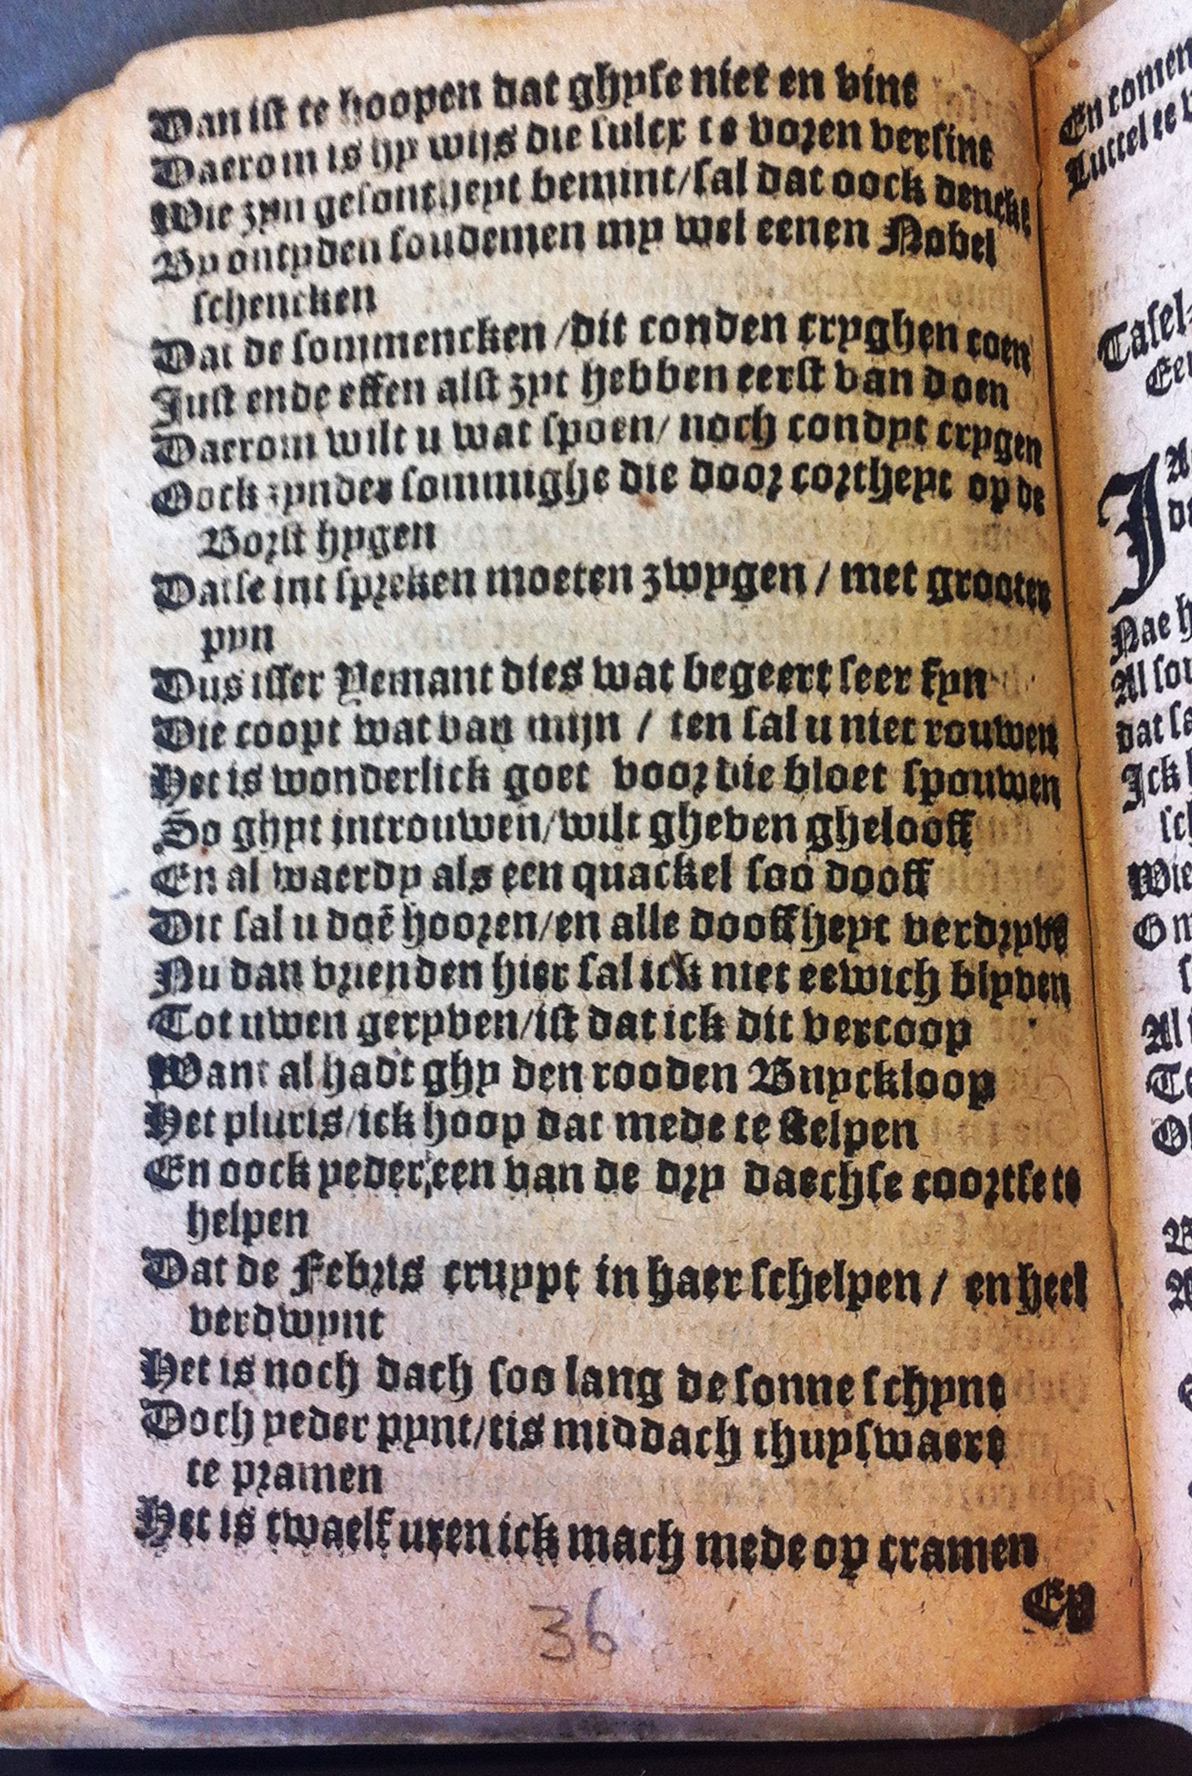 Dan ist te hoopen dat ghyse niet en vint
Daerom is hy wijs die sulcx te voren versint
Wie zyn gesontheyt bemint/sal dat oock dencke
By ontyden soudemen my wel eenen Nobel
schencken
Dat de sommencken /dit conden cryghen coen
Just ende effen alst zyt hebben eerst van doen
Daerom wilt u wat spoen/ noch condyt crygen
Oock zynder sommighe die door cortheyt op de
Borst hygen
Datse int spreken moeten zwygen / met grooter
pyn
Dus isser Yemant dies wat begeert seer fyn
Die coopt wat van mijn / ten sal u niet rouwen
Het is wonderlick goet voor die bloet spouwen
So ghyt introuwen/wilt gheven ghelooff
En al waerdy als een quackel soo dooff
Dit sal u doē hooren/en alle dooffheyt verdryvē
Nu dan vrienden hier sal ick niet eewich blyven
Tot uwen geryven/ist dat ick dit vercoop
Want al hadt ghy den rooden Buyckloop
Het pluris/ick hoop dat mede te stelpen
En oock yeder een van de dry daechse coortse te
helpen
Dat de Febris cruypt in haer schelpen / en heel
verdwynt
Het is noch dach soo lang de sonne schynt
Doch yeder pynt/tis middach thuyswaert
te pramen
Het is twaelf uren ick mach mede op cramen
En
36
En comen
Luttel te
Tafel-
Een
Nae h
Al sou
dat sa
Ick
sch
Wie
O m
Al